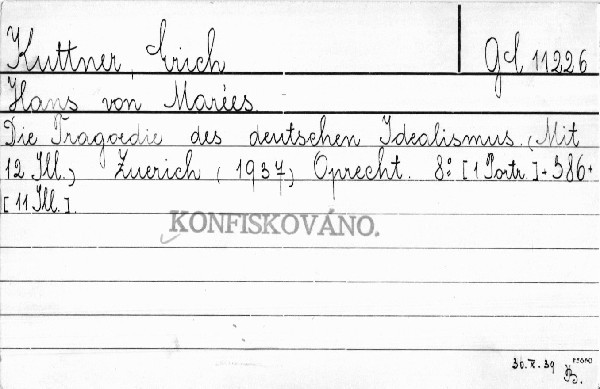 Kuttner, Erich Gd 11226
Hans von Marées.
Die Tragoedie des deutschen Idealismus. (Mit
12 Ill.) Zuerich (1937) Oprecht. 8° [1 Portr.]+386+
[11 Ill.].
KONFISKOVÁNO.
30.X.39